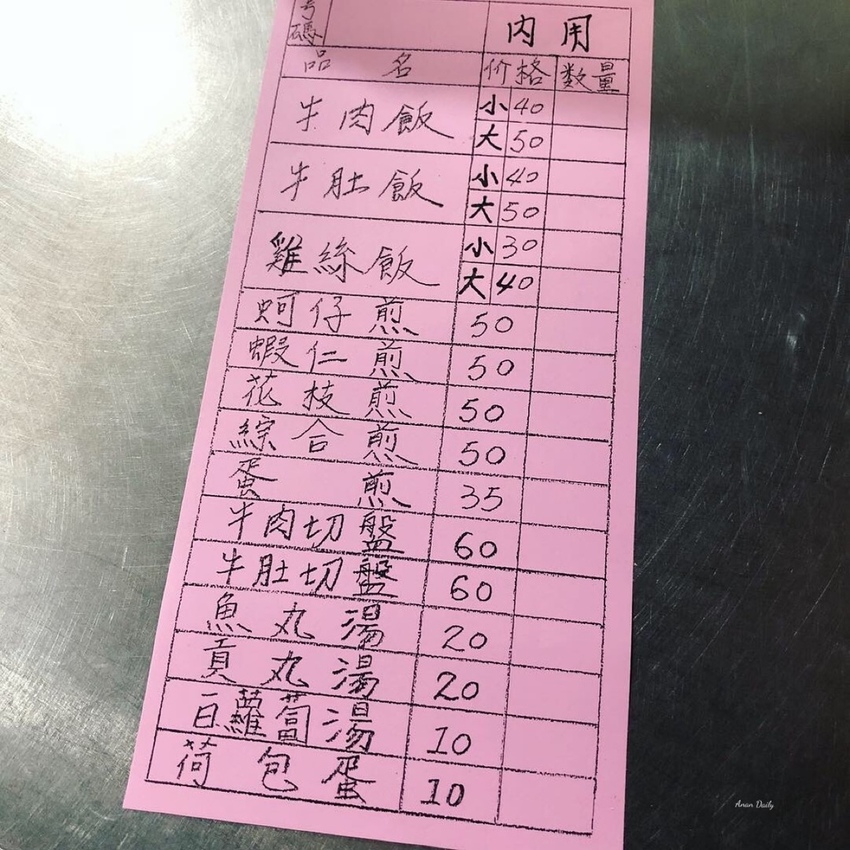 号碼 內用
品名 价格 数量
牛肉飯 小 40
大 50
牛肚飯 小 40
大 50
雞絲飯 小 30
大 40
蚵仔煎 50
蝦仁煎 50
花枝煎 50
綜合煎 50
蛋煎 35
牛肉切盤 60
牛肚切盤 60
魚丸湯 20
貢丸湯 20
白蘿蔔湯 10
荷包蛋 10
Anan Daily